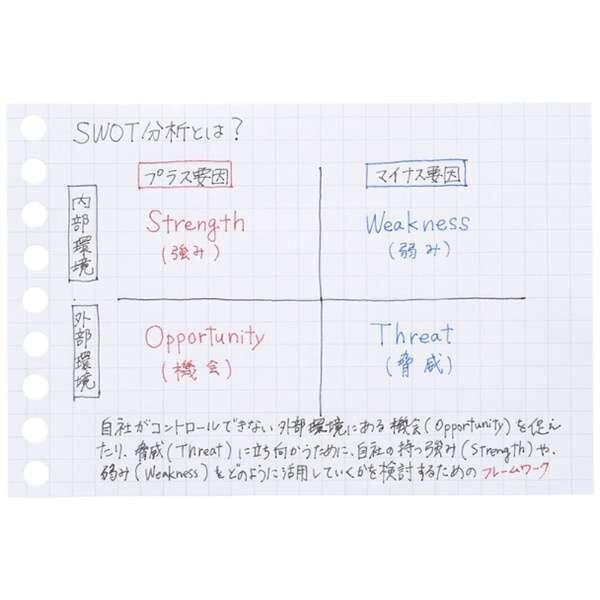 SWOT分析とは?
プラス要因 マイナス要因
内部環境
Strength Weakness
(強み) (弱み)
外部環境
Opportunity Threat
(機会) (脅威)
自社がコントロールできない外部環境にある機会(Opportunity)を促え
たり、脅威(Threat)に立ち向かうために、自社の持つ強み(Strength)や、
弱み(Weakness)をどのように活用していくかを検討するためのフレームワーク